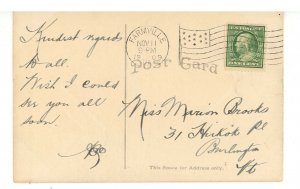 Kindest regards
to all.
Wish I could
see you all
soon.
FARMVILLE
NOV 11
PM
Post Card
Miss Marion Brooks
31 Pl
Burlington
Vt
This Space for Address only.